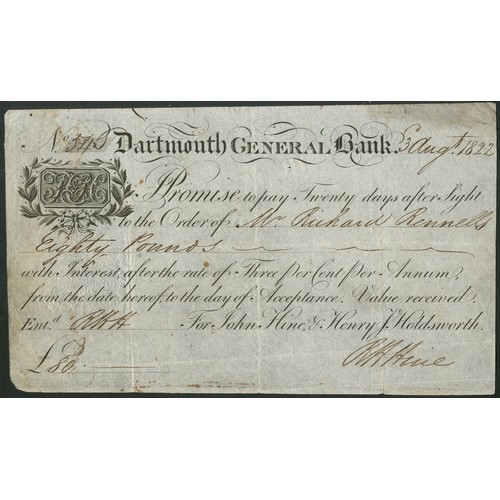 No. 543 Dartmouth GENERAL Bank. 3 Augt. 1822
I Promise to pay Twenty days after Sight
to the Order of Mr Richard Rennells
Eighty Pounds
with Interest, after the rate of Three per Cent per Annum,
from the date hereof, to the day of Acceptance. Value received.
Ent.d RHH For John Hine, & Henry J. Holdsworth.
£80
RH Hine